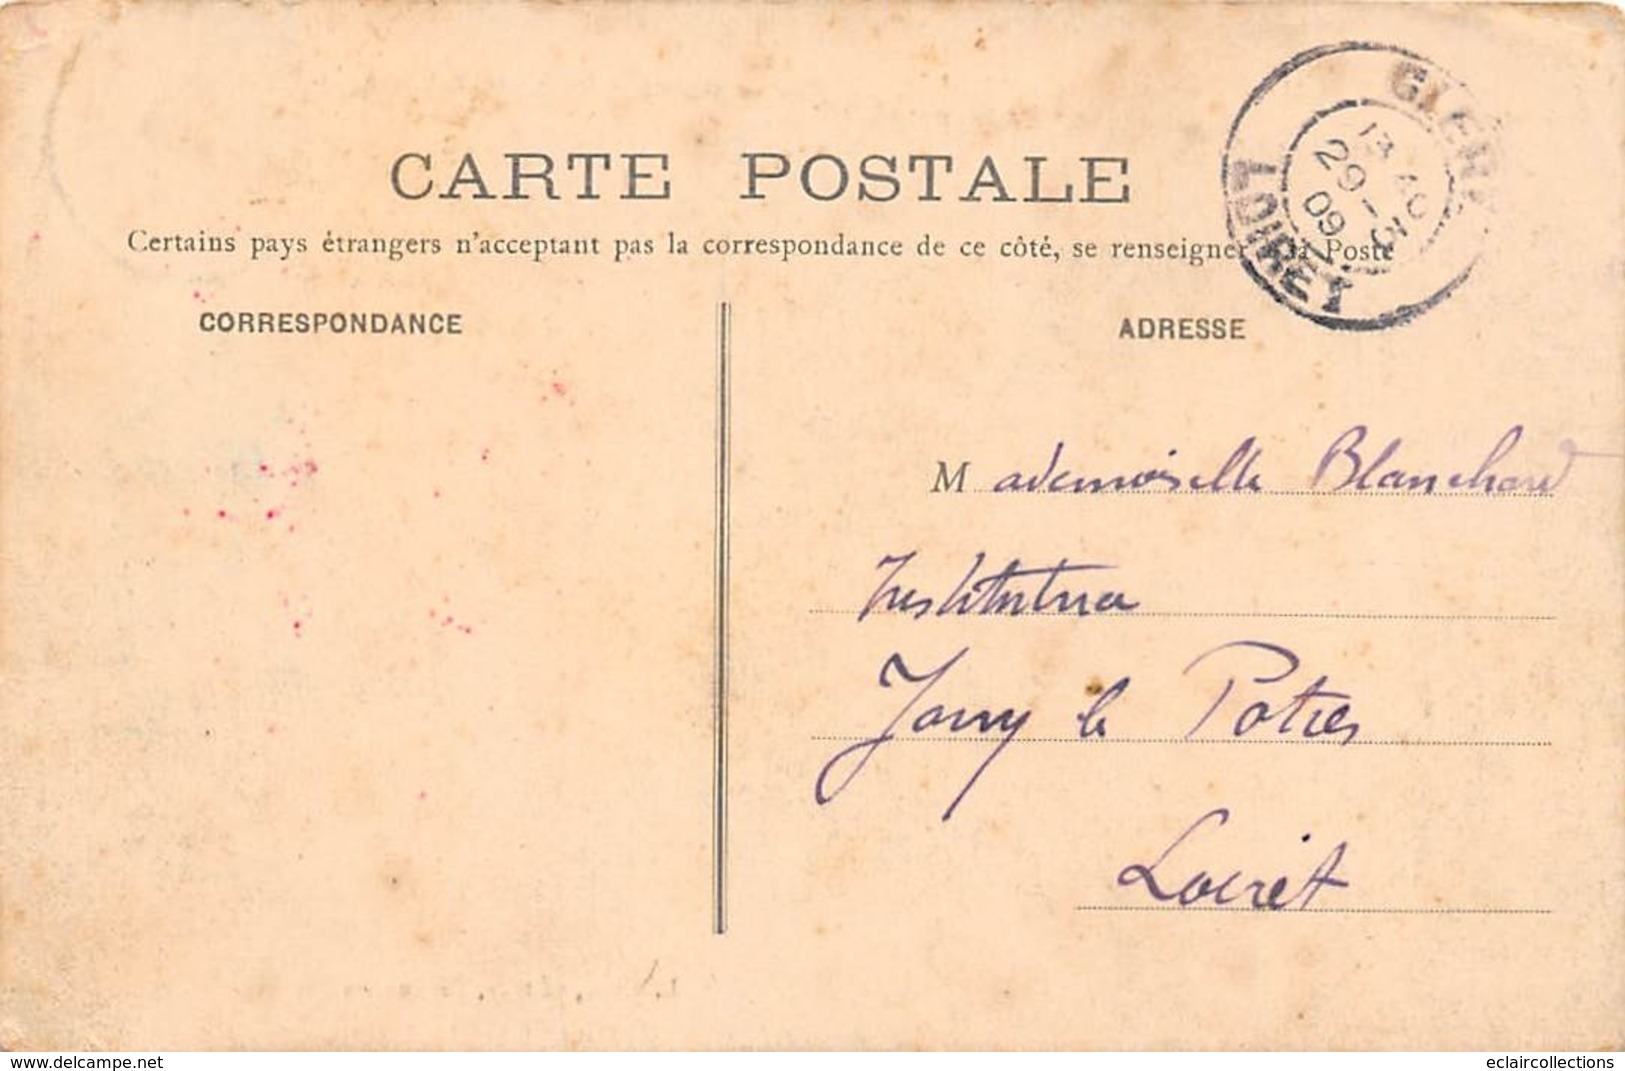 CARTE POSTALE
Certains pays étrangers n'acceptant pas la correspondance de ce côté, se renseigner à la Poste
CORRESPONDANCE
ADRESSE
Mademoiselle Blanchard
Institutrice
Jouy le Potier
Loiret
GIEN
13 40
29 - 3
09
LOIRET
www.delcampe.net
eclaircollections